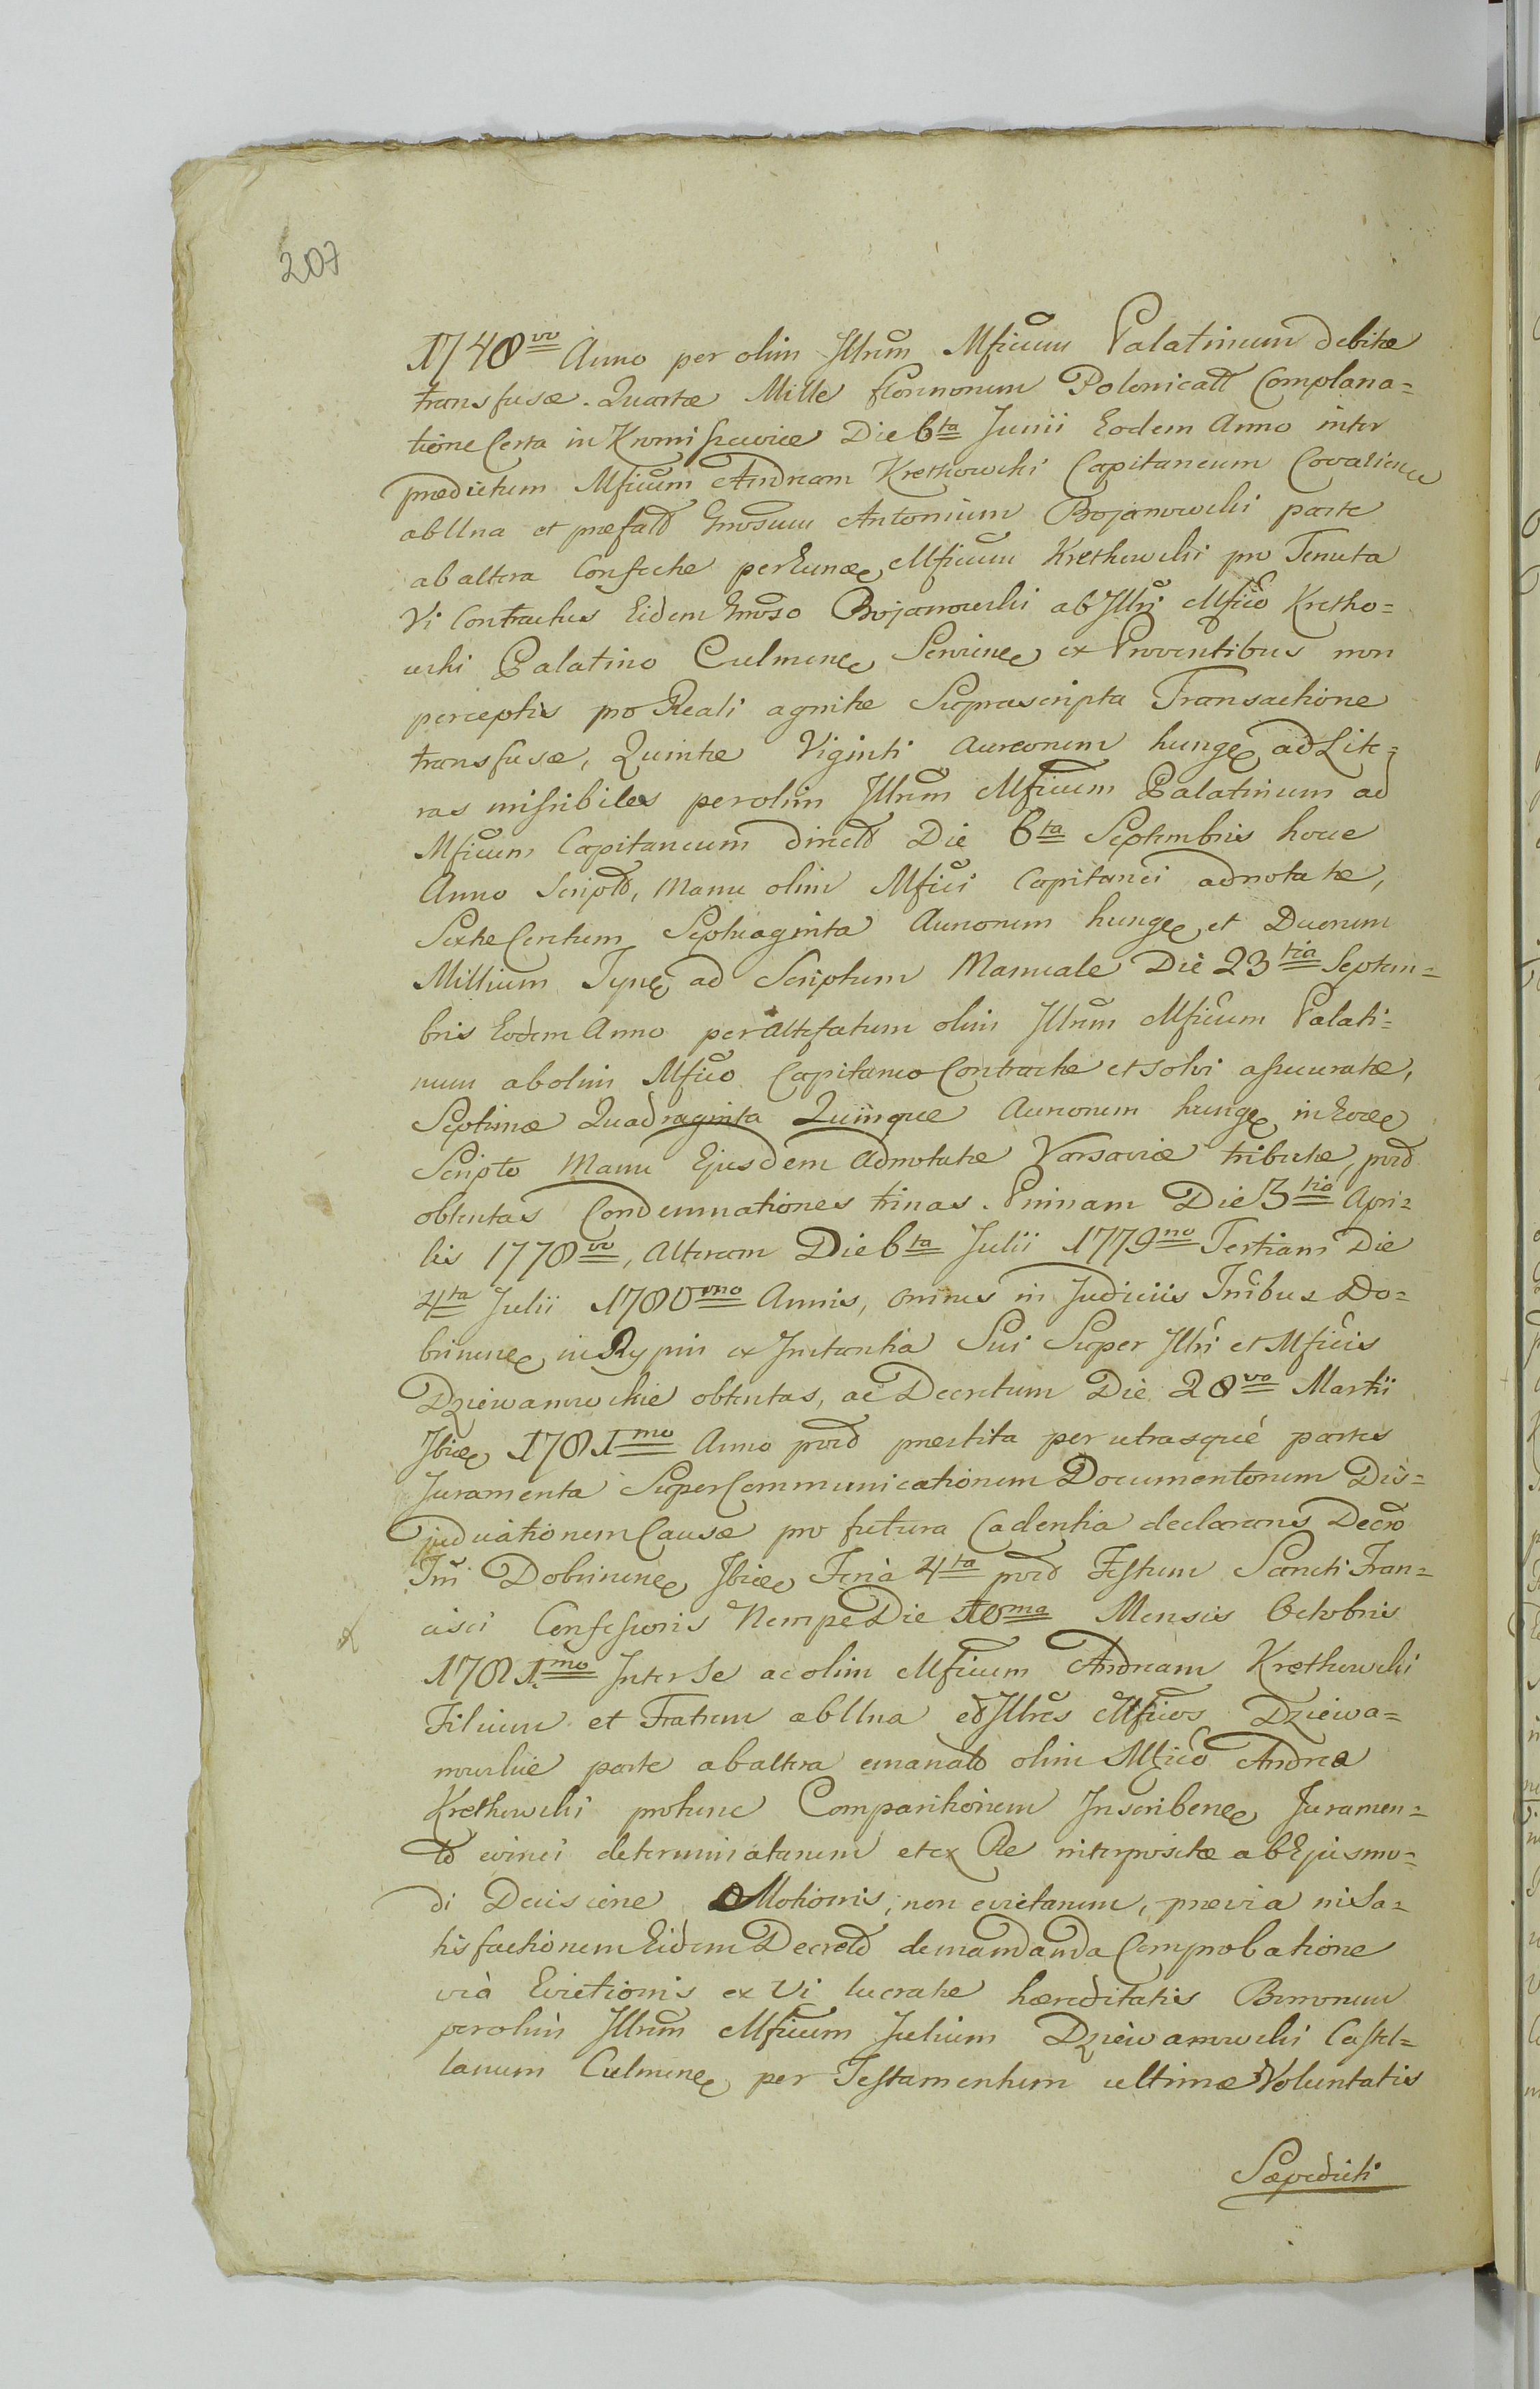 207
1748vo Anno per olim Illrum Mficum Palatinum debitæ
transfusæ. Quartæ Mille florenorum Polonicall Complana=
tione Certa in Kromszewice Die 6ta Junii Eodem Anno inter
prædictum Mficum Andream Kretkowski Capitaneum Covaliens
ab Una et præfatd Gnosum Antonium Bojanowski parte
ab altera Confectæ per Eund Mficum Kretkowski pro Tenuta
Vi Contractus Eidem Gnoso Bojanowski ab Illri Mfico Kretko=
wski Palatino Culmen Serviens ex Proventibus non
perceptis pro Reali agnitæ Suprascripta Transactione
transfusæ, Quintæ Viginti Aureorum hung ad Lite=
ras missibiles per olim Illrum Mficum Palatinum ad
Mficum Capitaneum directd Die 6ta Septembris hocce
Anno Scriptd, Manu olim Mfici Capitanei adnotatæ,
Sextæ Centum Septuaginta Aureorum hung et Duorum
Millium Tynf ad Scriptum Manuale Die 23tia Septem=
bris Eodem Anno per Altefatum olim Illrum Mficum Palati=
num ab olim Mfico Capitaneo Contractæ et solvi assecuratæ,
Septimæ Quadraginta Quinque Aureorum hung in Eoee
Scripto Manu Ejusdem Adnotatæ Varsaviæ tributæ, pord
obtentas Condemnationes trinas. Primam Die 3tia Apri=
lis 1778vo, Alteram Die 6ta Julii 1779no Tertiam Die
4ta Julii 1780mo Annis, omnes in Judiciis Tribus Do=
brinen in Rypin ex Instantia Sui Super Illri et Mficis
Dziewanowskie obtentas, ac Decretum Die 28vo Martii
Ibid 1781mo Anno pord præstita per utrasque partes
Juramenta Super Communicationem Documentorum Dis=
judicationem Causæ pro futura Cadentia declarans Decro
Tri Dobrinen Ibid Feria 4ta pord Festum Sancti Fran=
cisci Confessoris Nempe Die 10ma Mensis Octobris
1781mo Inter Se ac olim Mficum Andream Kretkowski
Filium et Fratrem ab Una et Illres Mficos Dziewa=
nowskie parte ab altera emanatd olim Mfico Andrea
Kretkowski protunc Comparitionem Inscriben Juramen=
td evinci determinatarum et ex Re interpositæ ab Ejusmo=
di Decisione Motionis, non evictarum, prævia in Sa=
tisfactionem Eidem Decretd demandanda Comprobatione
via Evictionis ex Vi lucratæ hæreditatis Bonorum
per olim Illrum Mficum Julium Dziewanowski Castel=
lanum Culmen per Testamentum ultimæ Voluntatis
Sæpedicti